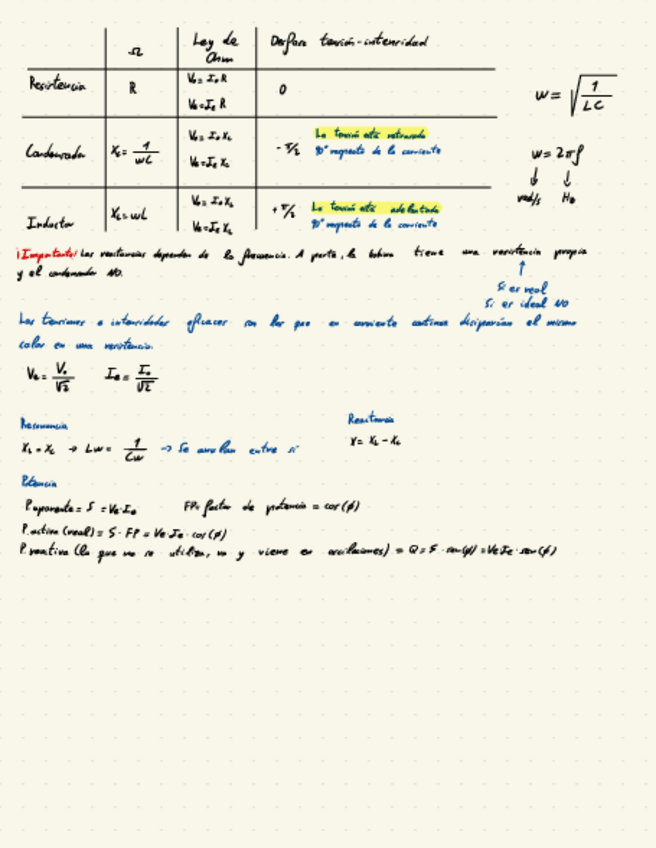 Ω Ley de Ohm Desfase tensión-intensidad
Resistencia R V₀ = I₀ R 0
Ve = Ie R
ω = √(1/LC)
Condensador Xc = 1/ωC V₀ = I₀ Xc - π/2 La tensión está retrasada
Ve = Ie Xc 90° respecto de la corriente
ω = 2πf
rad/s Hz
Inductor XL = ωL V₀ = I₀ XL + π/2 La tensión está adelantada
Ve = Ie XL 90° respecto de la corriente
¡Importante! Las reactancias dependen de la frecuencia. A parte, la bobina tiene una resistencia propia
y el condensador NO.
Si es real
Si es ideal NO
Las tensiones o intensidades eficaces son las que en corriente continua disiparían el mismo
calor en una resistencia.
Ve = V₀/√2 Ie = I₀/√2
Resonancia Reactancia
XL = Xc → Lω = 1/Cω → Se anulan entre sí X = XL - Xc
Potencia
P. aparente = S = Ve·Ie FP = factor de potencia = cos(φ)
P. activa (real) = S · FP = Ve·Ie · cos(φ)
P. reactiva (la que no se utiliza, va y viene en oscilaciones) = Q = S · sen(φ) = Ve Ie · sen(φ)